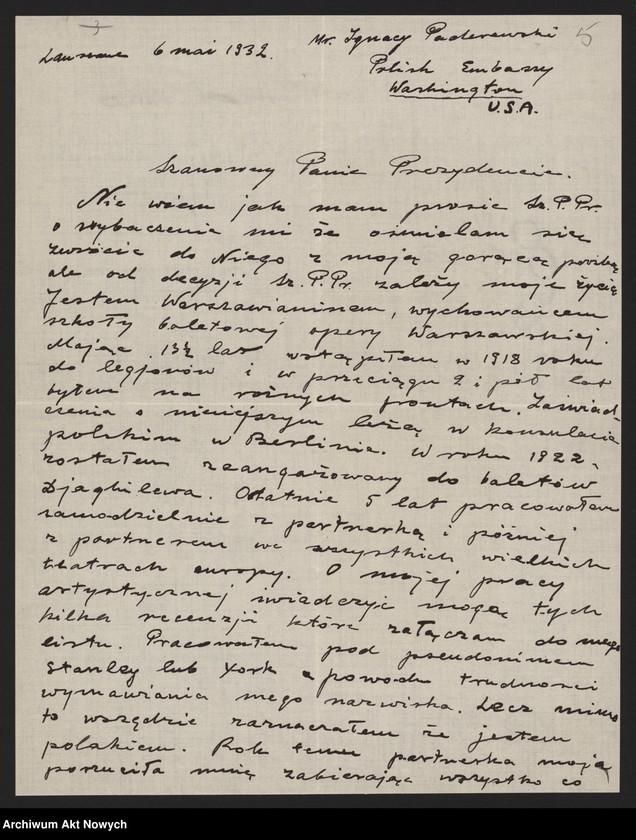 3
5
Lausanne 6 mai 1932.
Mr. Ignacy Paderewski
Polish Embassy
Washington
U.S.A.
Szanowny Panie Prezydencie.
Nie wiem jak mam prosic Sz.P.Pr.
o wybaczenie mi że ośmielam się
zwrócic do Niego z moją gorącą prośbą
ale od decyzji Sz.P.Pr. zależy moje życie
Jestem Warszawianinem, wychowańcem
szkoły baletowej opery Warszawskiej.
Mając 13½ lat wstąpiłem w 1918 roku
do legjonów i w przeciągu 2 i pół lat
byłem na różnych frontach. Zaświad-
czenia o niniejszym leżą w konsulacie
polskim w Berlinie. W roku 1922
zostałem zaangażowany do baletów
Djaghilewa. Ostatnie 5 lat pracowałem
samodzielnie z partnerką i później
z partnerem we wszystkich wielkich
teatrach europy. O mojej pracy
artystycznej świadczyć mogą tych
kilka recenzji które załączam do mego
listu. Pracowałem pod pseudonimem
Stanley lub York z powodu trudności
wymawiania mego nazwiska. Lecz mimo
to wszędzie zaznaczałem że jestem
polakiem. Rok temu partnerka moja
porzuciła mnię zabierając wszystko co
Archiwum Akt Nowych